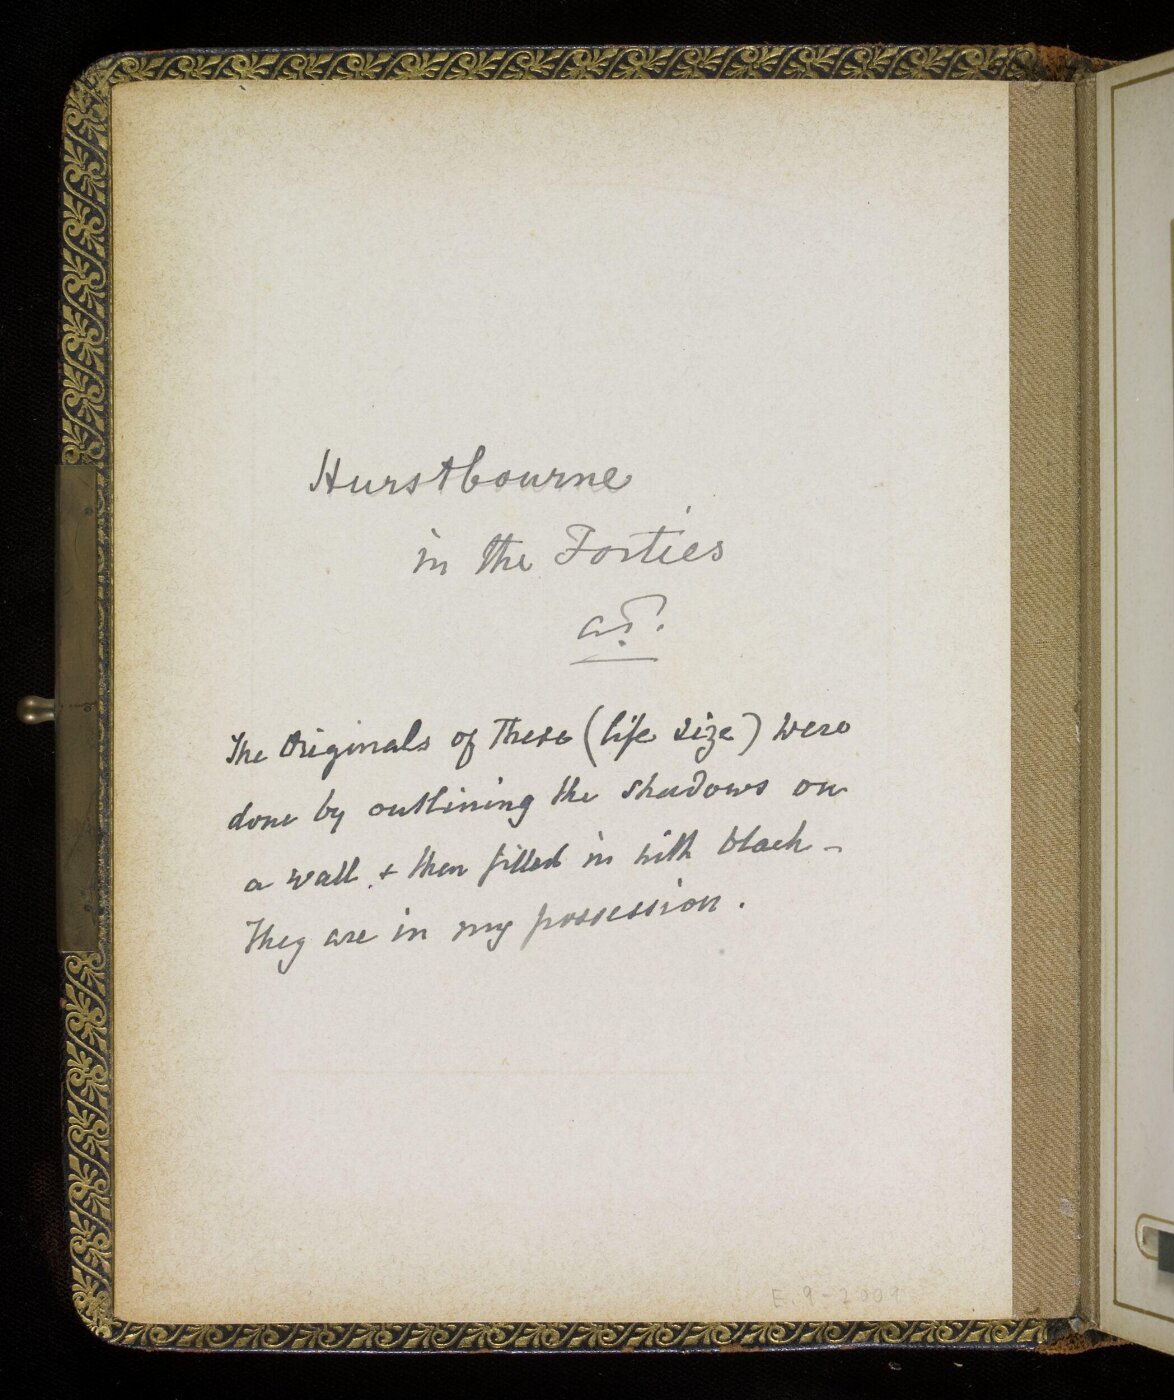 Hurstbourne
in the Forties
The Originals of These (life size) were
done by outlining the shadows on
a wall & then filled in with black –
They are in my possession.
E.9-2009